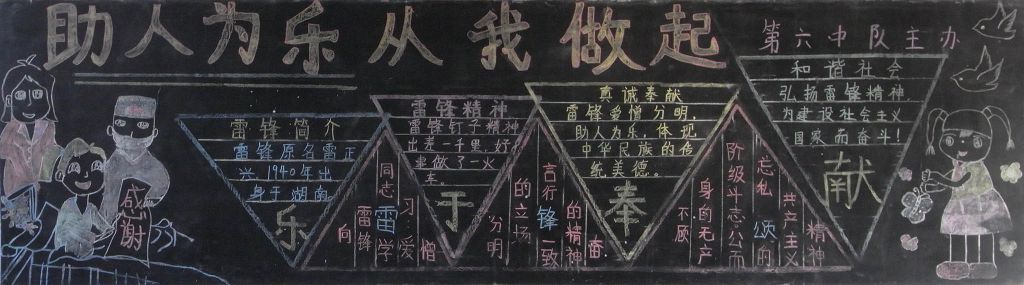 助人为乐从我做起
第六中队主办
感谢
雷锋简介
雷锋原名雷正
兴1940年出
身于湖南
乐
雷锋精神
雷锋钉子精神
出差一千里,好
事做了一火
车。
于
真诚奉献
雷锋爱憎分明,
助人为乐,体现
中华民族的传
统美德。
奉
和谐社会
弘扬雷锋精神,
为建设社会主义
国家而奋斗!
献
向
雷锋
同志
雷学
习:爱
憎
分明
的立场
言行
锋一致
的精神
奋
不顾
身的无产
阶级斗志公而
忘私
颂的
共产主义
精神